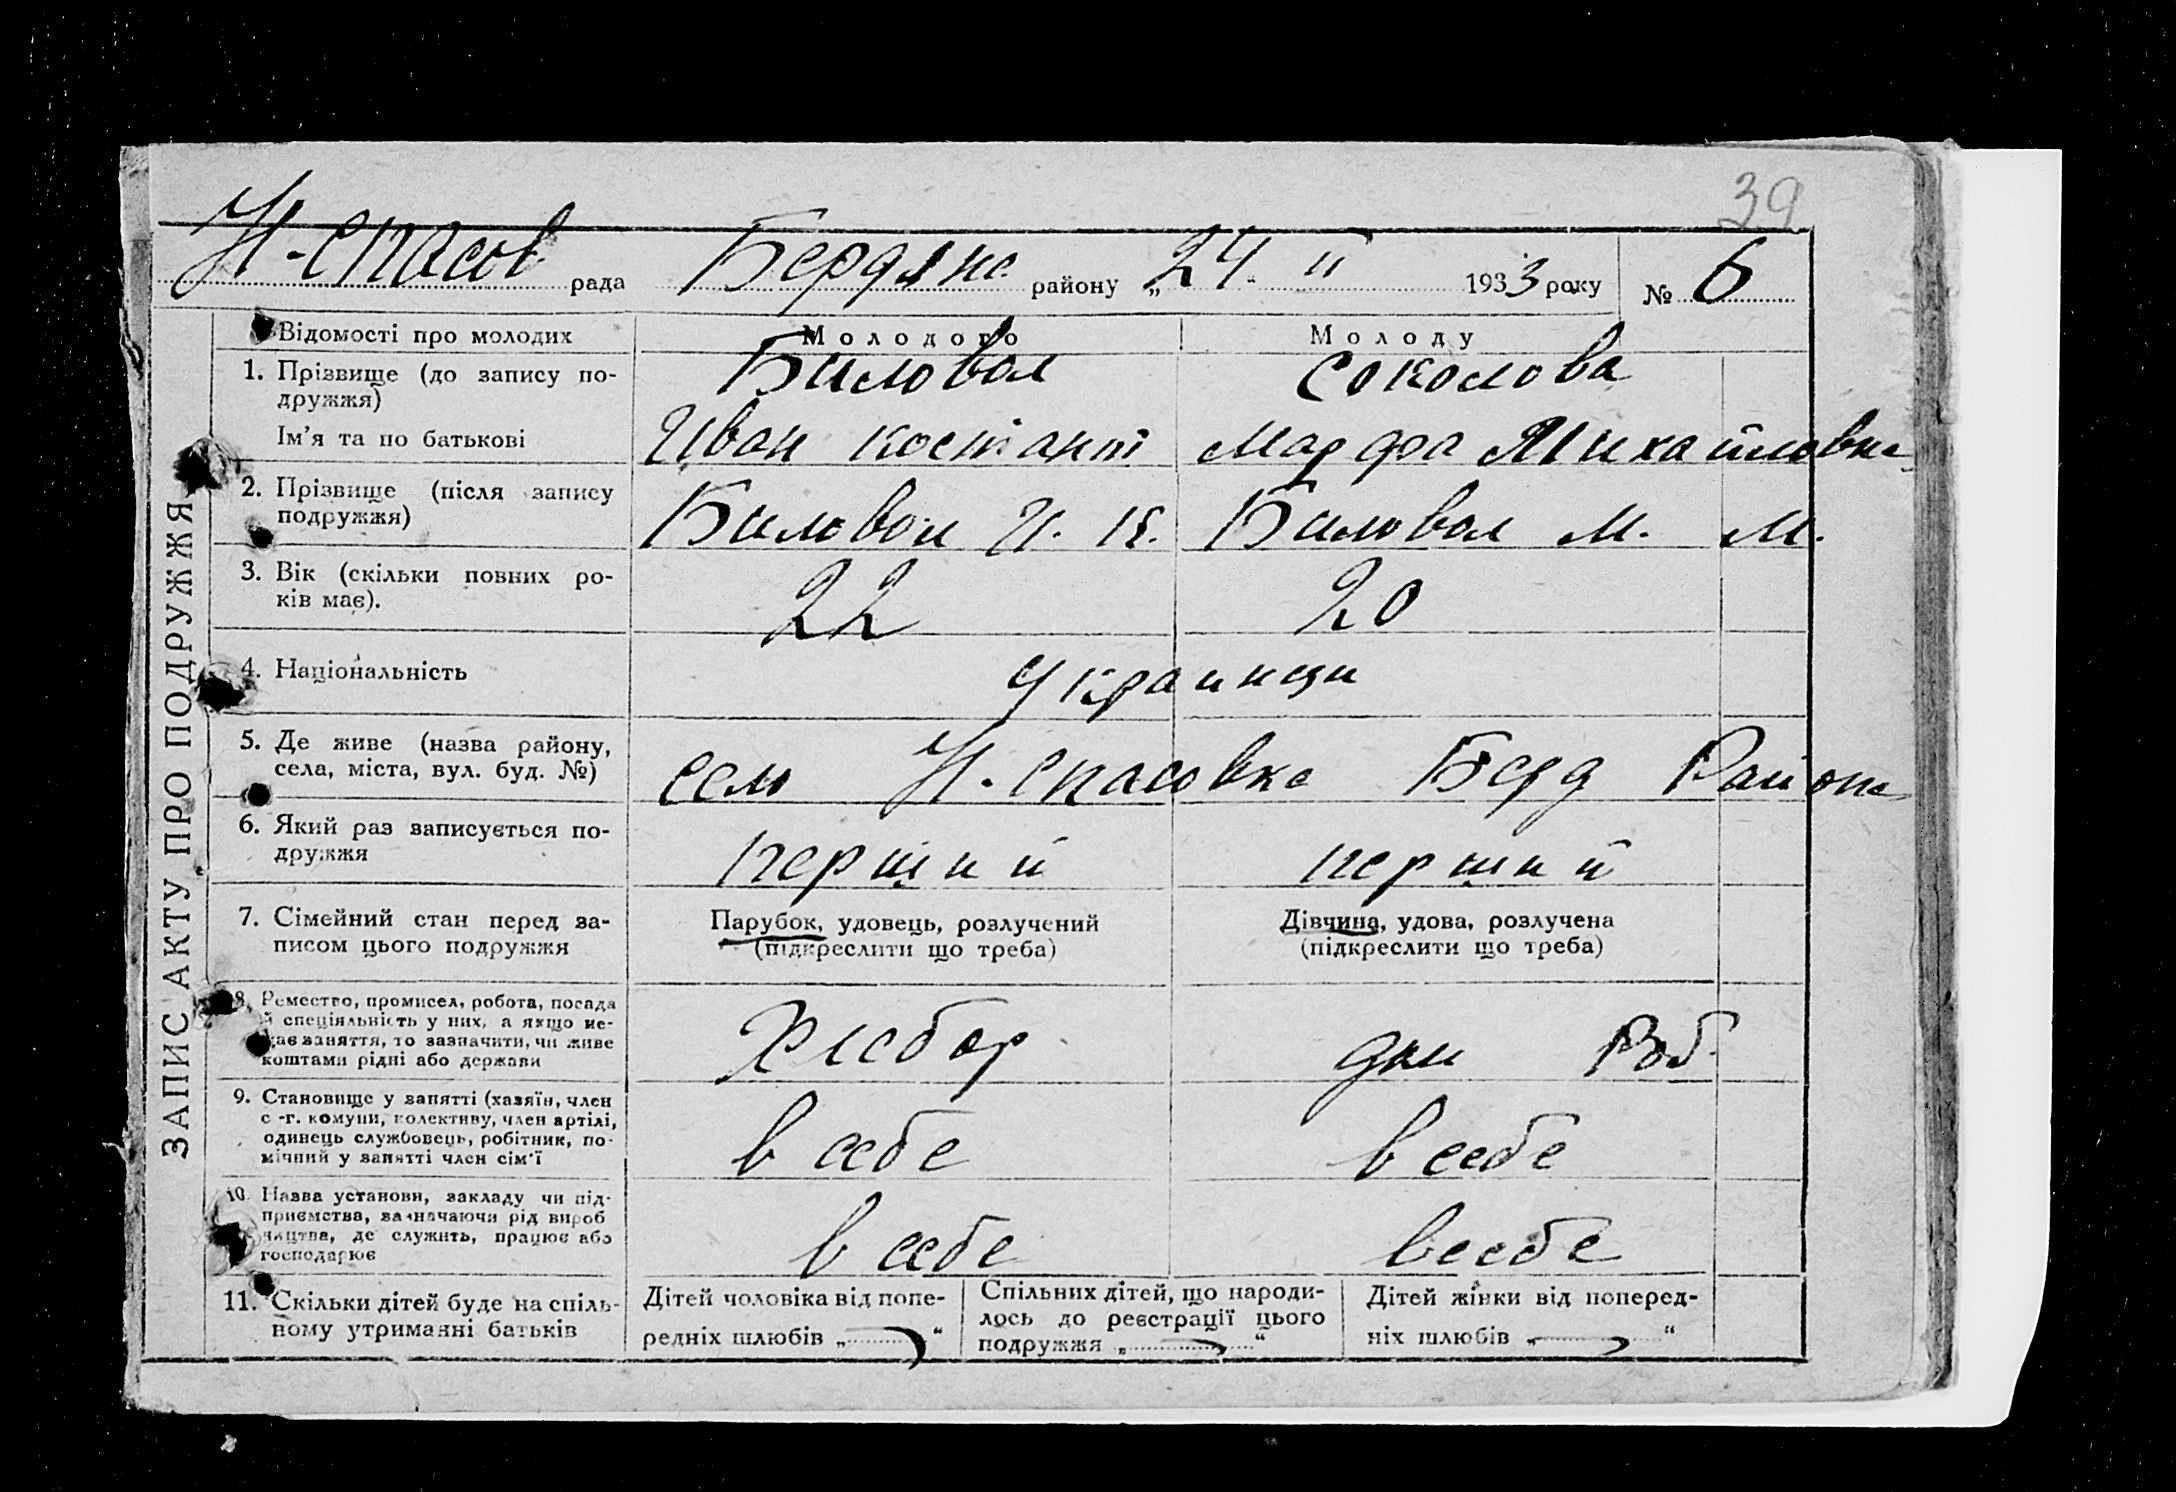 39
Н-Спасов рада Бердянс району „24 II 1933 року № 6
ЗАПИС АКТУ ПРО ПОДРУЖЖЯ
Відомості про молодих Молодого Молоду
1. Прізвище (до запису по- Биловол Соколова
дружжя)
Ім’я та по батькові Иван Костант Марфа Михайловна
2. Прізвище (після запису
подружжя) Биловол И. К. Биловол М. М.
3. Вік (скільки повних ро- 22 20
ків має).
4. Національність Украинци
5. Де живе (назва району,
села, міста, вул. буд. №) село Н-Спасовка Берд Района
6. Який раз записується по-
дружжя перший перший
7. Сімейний стан перед за- Парубок, удовець, розлучений Дівчина, удова, розлучена
писом цього подружжя (підкреслити що треба) (підкреслити що треба)
8. Ремество, промисел, робота, посада
й спеціяльність у них, а якщо не-
має заняття, то зазначити, чи живе Хлебор Роб
коштами рідні або держави
9. Становище у занятті (хазяїн, член
с-г. комуни, колективу, член артілі,
одинець службовець, робітник, по- в себе в себе
мічний у занятті член сім’ї
10. Назва установи, закладу чи під-
приємства, зазначаючи рід вироб
ництва, де служить, працює або в себе в себе
господарює
11. Скільки дітей буде на спіль- Дітей чоловіка від попе- Спільних дітей, що народи- Дітей жінки від поперед-
ному утриманні батьків редніх шлюбів „ “ лось до реєстрації цього ніх шлюбів „ “
подружжя „ “